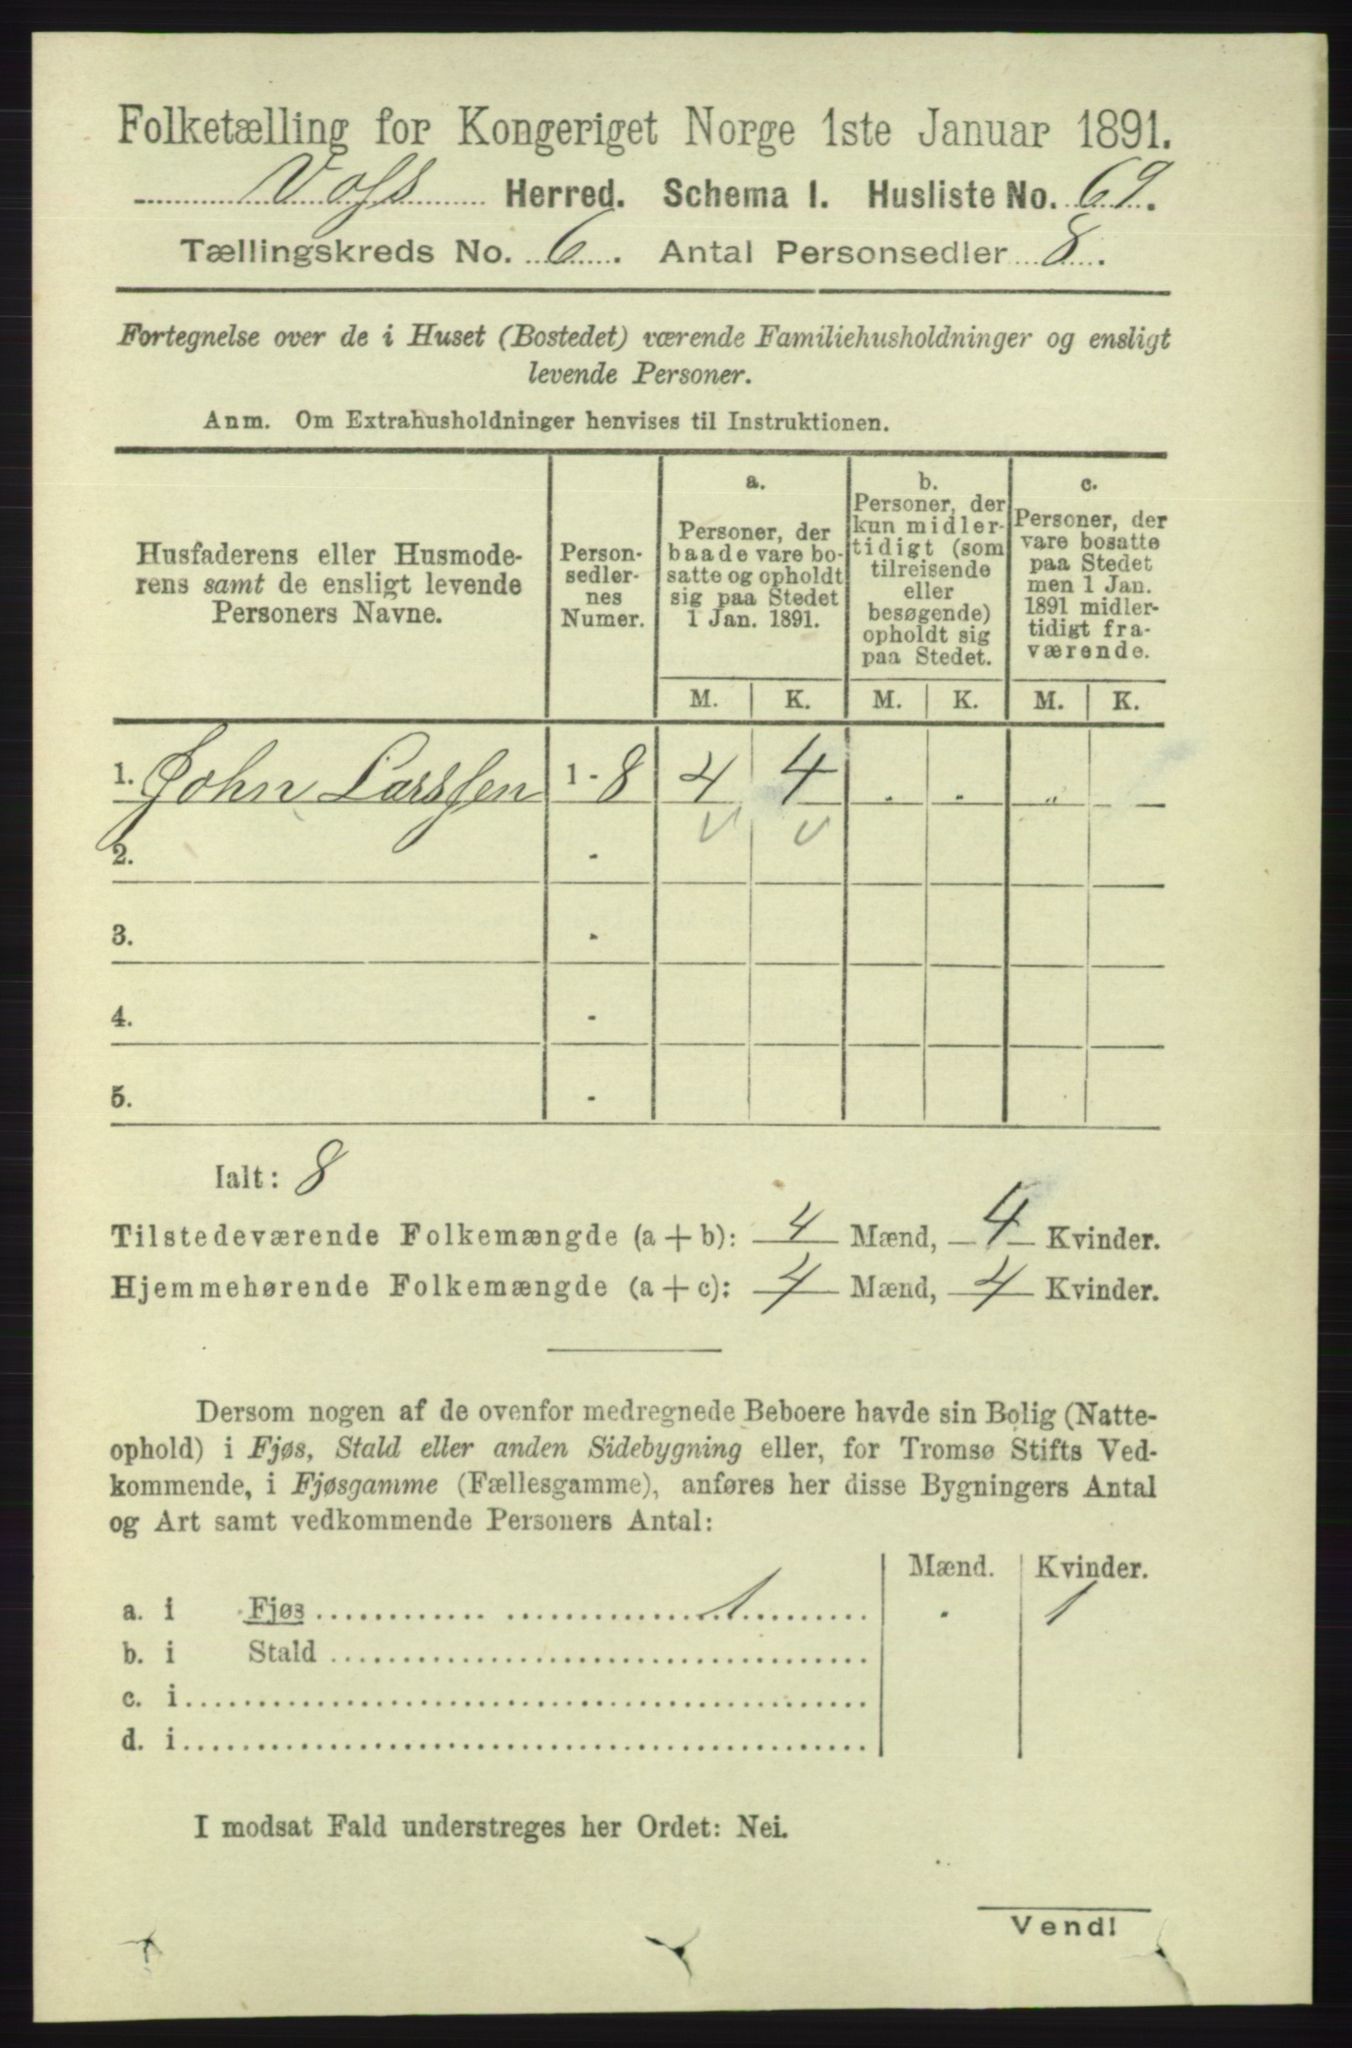 Folketælling for Kongeriget Norge 1ste Januar 1891.
Voss Herred. Schema I. Husliste No. 69.
Tællingskreds No. 6. Antal Personsedler 8.
Fortegnelse over de i Huset (Bostedet) værende Familiehusholdninger og ensligt
levende Personer.
Anm. Om Extrahusholdninger henvises til Instruktionen.
Husfaderens eller Husmode-
rens samt de ensligt levende
Personers Navne.
Person-
sedler-
nes
Numer.
a.
Personer, der
baade vare bo-
satte og opholdt
sig paa Stedet
1 Jan. 1891.
b.
Personer, der
kun midler-
tidigt (som
tilreisende
eller
besøgende)
opholdt sig
paa Stedet.
c.
Personer, der
vare bosatte
paa Stedet
men 1 Jan.
1891 midler-
tidigt fra-
værende.
M. K. M. K. M. K.
1. John Larssen 1 - 8 4 4 . . „
2. -
3. -
4. -
5. -
Ialt: 8
Tilstedeværende Folkemængde (a + b): 4 Mænd, 4 Kvinder.
Hjemmehørende Folkemængde (a + c): 4 Mænd, 4 Kvinder.
Dersom nogen af de ovenfor medregnede Beboere havde sin Bolig (Natte-
ophold) i Fjøs, Stald eller anden Sidebygning eller, for Tromsø Stifts Ved-
kommende, i Fjøsgamme (Fællesgamme), anføres her disse Bygningers Antal
og Art samt vedkommende Personers Antal:
Mænd. Kvinder.
a. i Fjøs 1 . 1
b. i Stald
c. i
d. i
I modsat Fald understreges her Ordet: Nei.
Vend!